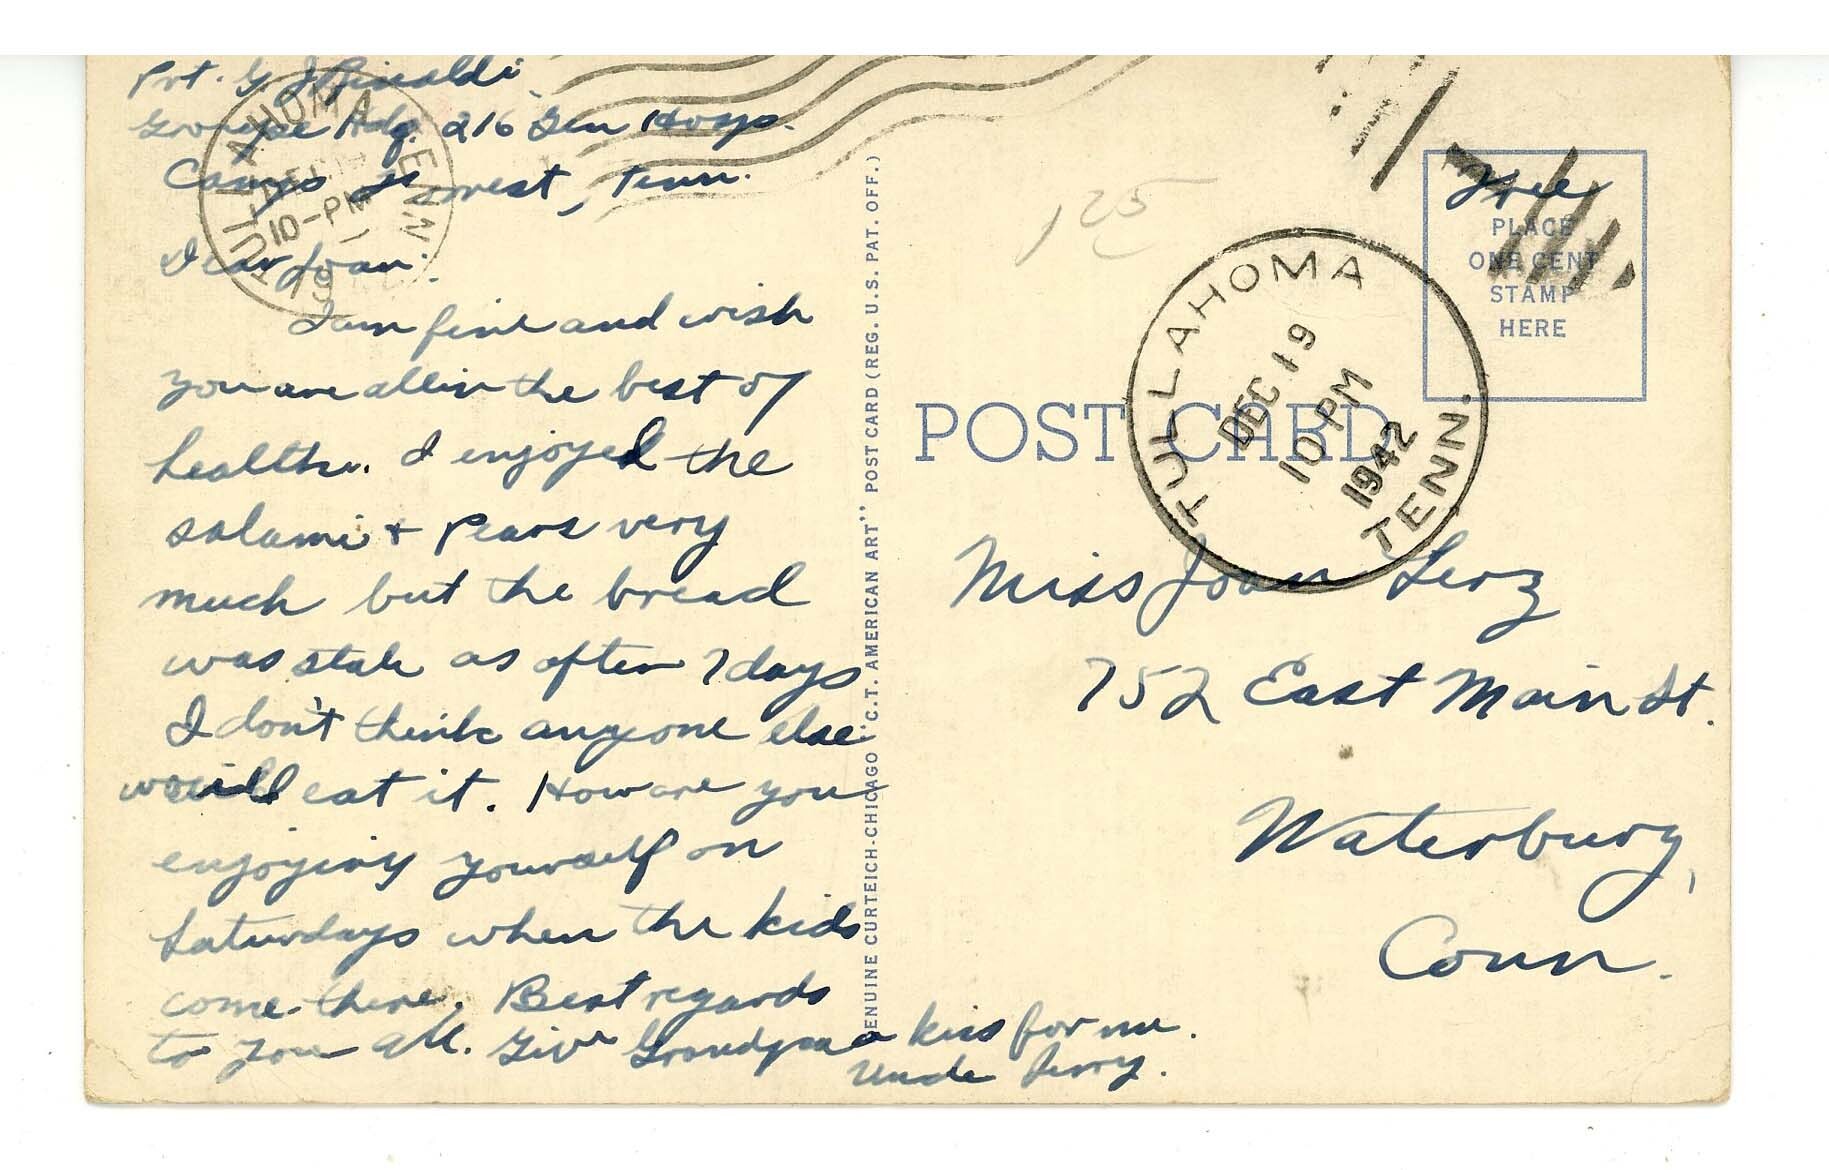 Pvt. G. J. Rinaldi
Hdq. 216 Gen Hosp.
Camp Forrest, Tenn.
Dear Joan:
I am fine and wish
you are all in the best of
health. I enjoyed the
salami & Pears very
much but the bread
was stale as after 7 days
I don't think anyone else
would eat it. How are you
enjoying yourself on
Saturdays when the kids
come there. Best regards
to you all. Give Grandpa a kiss for me.
Uncle Jerry.
TULLAHOMA TENN
10-PM
19
GENUINE CURTEICH-CHICAGO "C.T. AMERICAN ART" POST CARD (REG. U.S. PAT. OFF.)
125
Free
PLACE
ONE CENT
STAMP
HERE
POST CARD
TULLAHOMA TENN.
DEC 19
10 PM
1942
Miss Joan Lerz
752 East Main St.
Waterbury,
Conn.